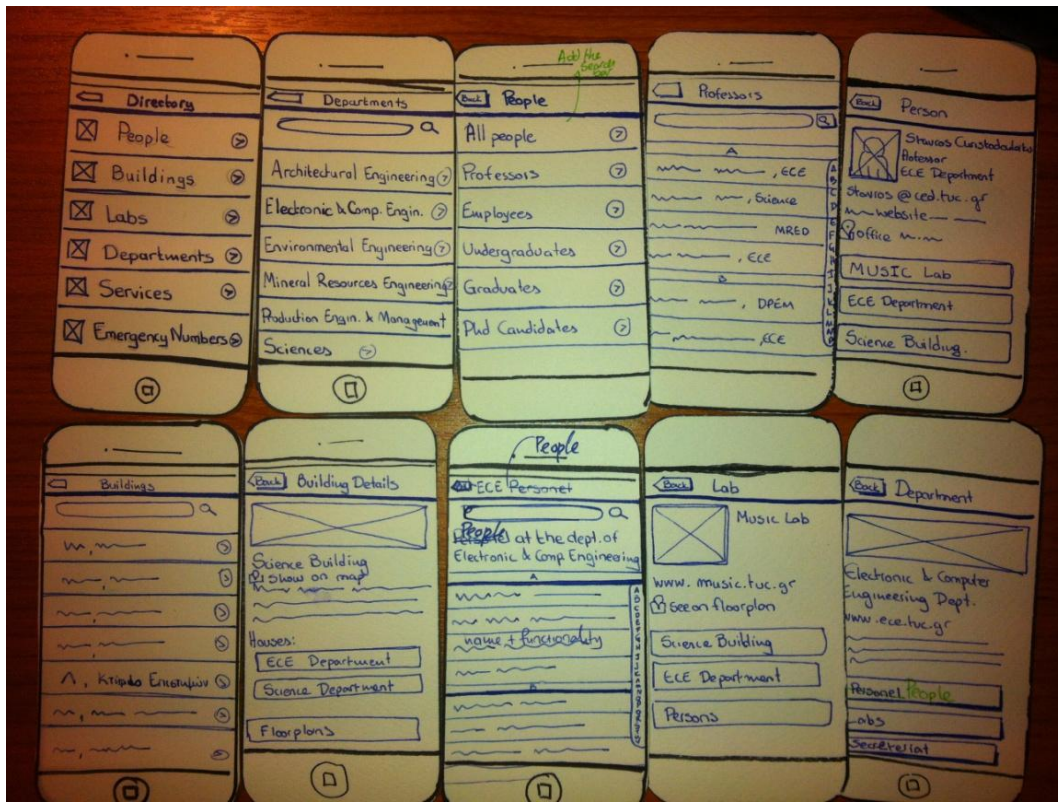 Directory
People
Buildings
Labs
Departments
Services
Emergency Numbers
Departments
Architectural Engineering
Electronic & Comp. Engin.
Environmental Engineering
Mineral Resources Engineering
Production Engin. & Management
Sciences
Add the
search
bar
Back People
All people
Professors
Employees
Undergraduates
Graduates
Phd Candidates
Professors
A
, ECE
, Science
MRED
, ECE
B
, DPEM
, ECE
A
B
C
D
E
F
G
H
I
J
K
L
M
N
P
Back Person
Stavros
Professor
ECE Department
Stavros @ced.tuc.gr
website
office
MUSIC Lab
ECE Department
Science Building.
Buildings
Λ, Κτίριο Επιστημών
Back Building Details
Science Building
show on map
Houses:
ECE Department
Science Department
Floorplans
People
ECE Personel
People at the dept. of
Electronic & Comp Engineering
A
name + functionality
B
Back Lab
Music Lab
www.music.tuc.gr
See on floorplan
Science Building
ECE Department
Persons
Back Department
Electronic & Computer
Engineering Dept.
www.ece.tuc.gr
Personel People
Labs
Secreteriat